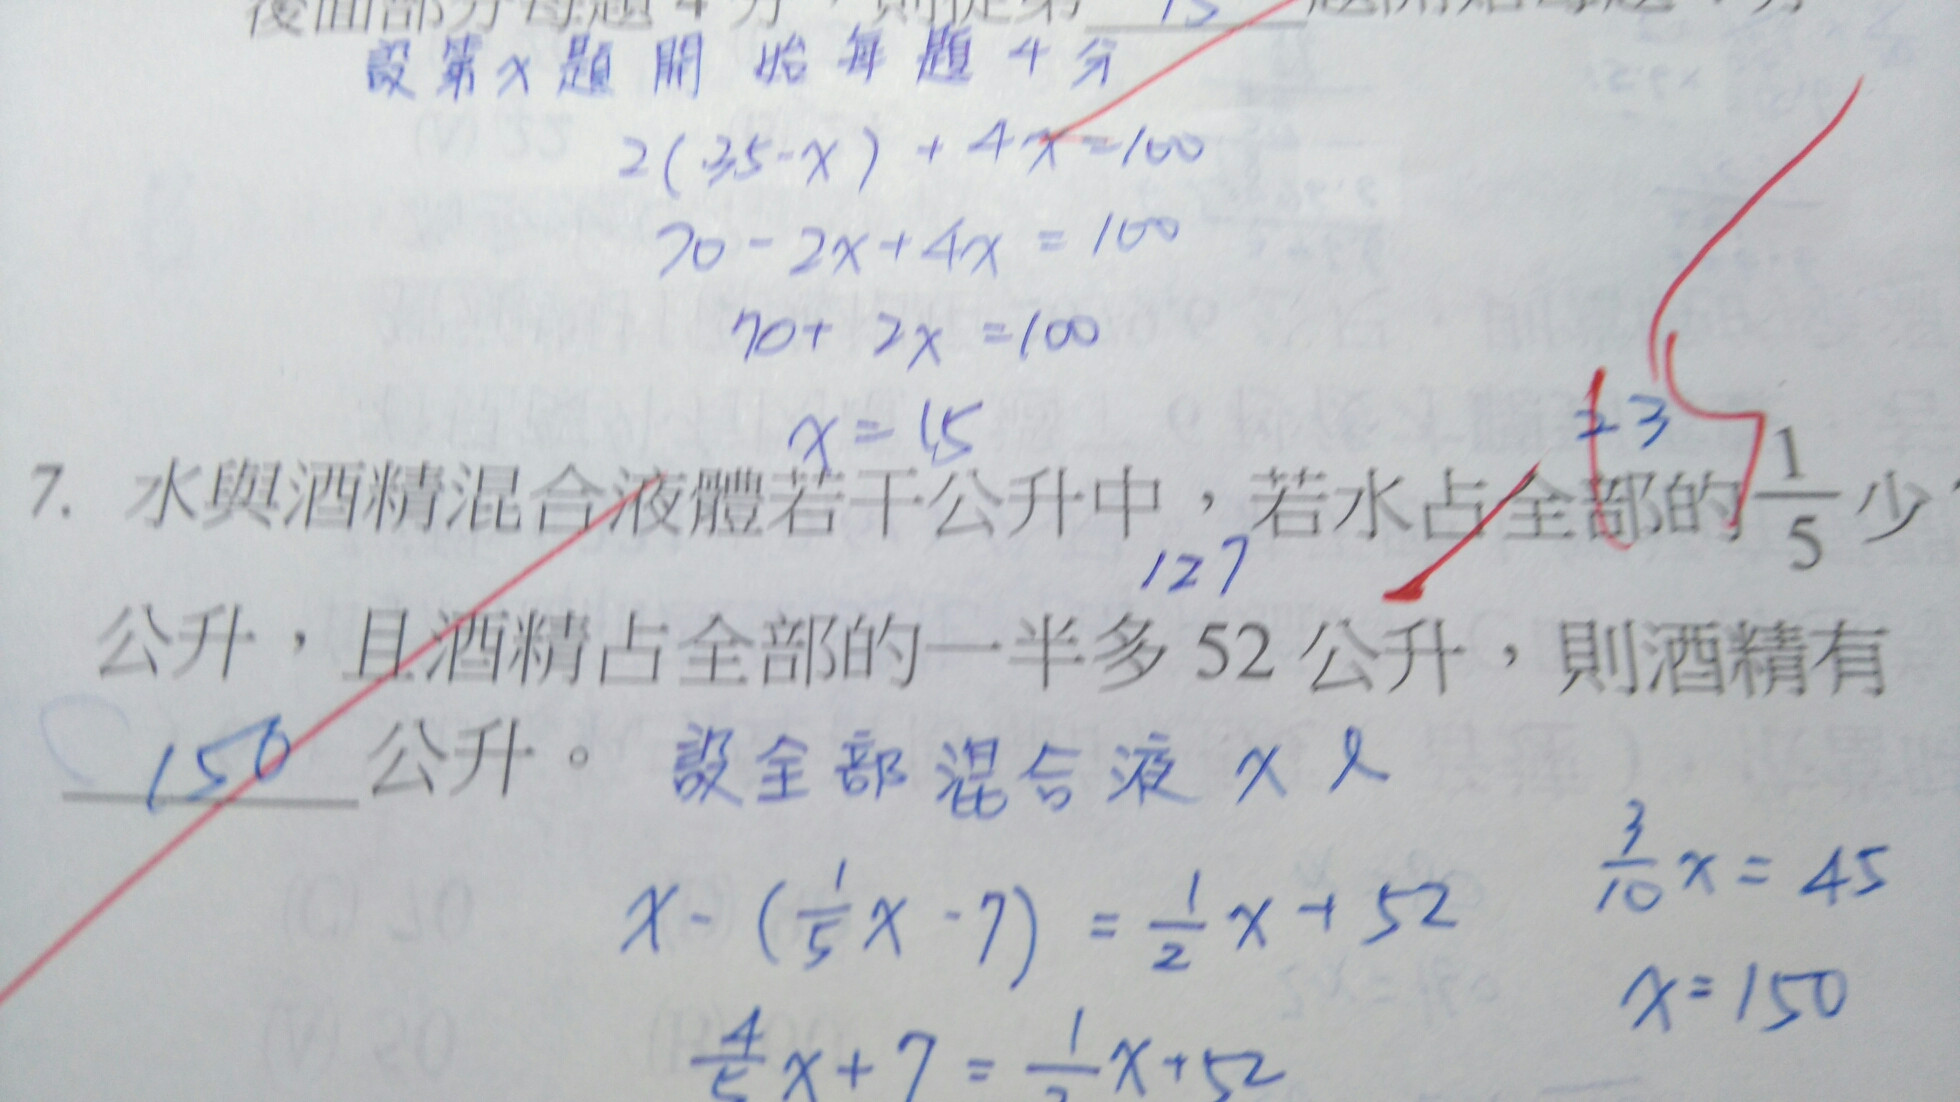 後面部分每題4分,則從第 15 題開始每題4分
設第x題開始每題4分
2(35-x)+4x=100
70-2x+4x=100
70+2x=100
x=15
=23
7. 水與酒精混合液體若干公升中,若水占全部的1/5少
127
公升,且酒精占全部的一半多52公升,則酒精有
150 公升。 設全部混合液 x l
x-(1/5x-7)=1/2x+52
3/10x=45
x=150
4/5x+7=1/2x+52